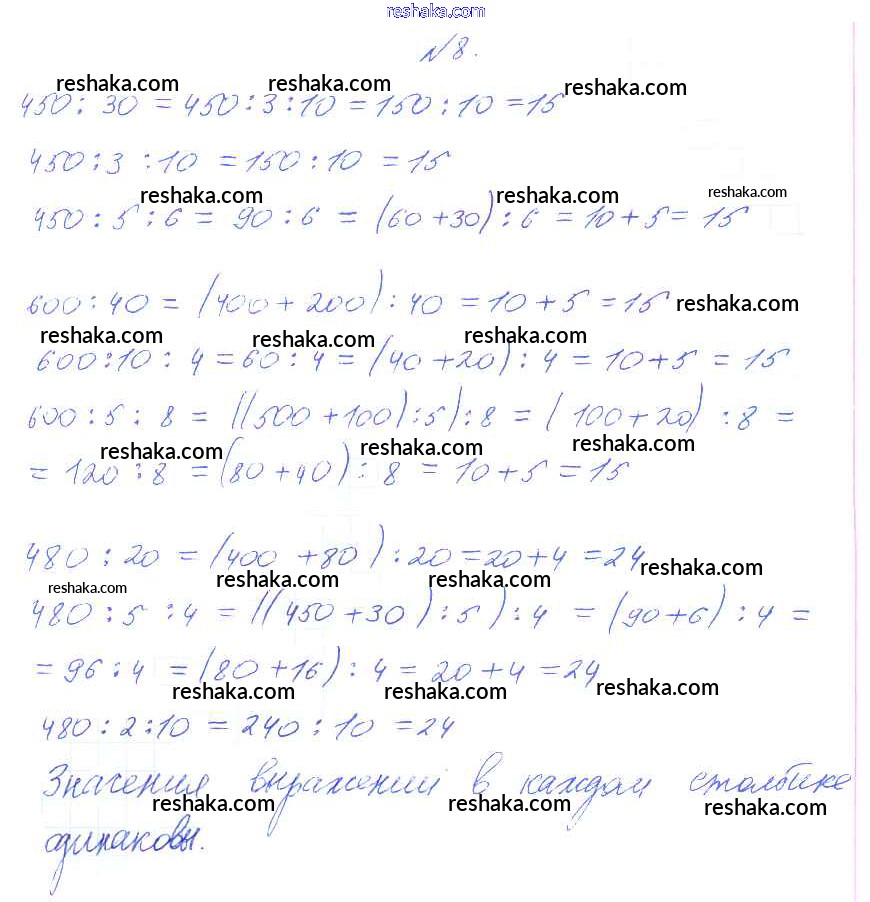 reshaka.com
№8.
reshaka.com reshaka.com reshaka.com
450 : 30 = 450 : 3 : 10 = 150 : 10 = 15
450 : 3 : 10 = 150 : 10 = 15
reshaka.com reshaka.com reshaka.com
450 : 5 : 6 = 90 : 6 = (60 + 30) : 6 = 10 + 5 = 15
600 : 40 = (400 + 200) : 40 = 10 + 5 = 15 reshaka.com
reshaka.com reshaka.com reshaka.com
600 : 10 : 4 = 60 : 4 = (40 + 20) : 4 = 10 + 5 = 15
600 : 5 : 8 = ((500 + 100) : 5) : 8 = (100 + 20) : 8 =
reshaka.com reshaka.com reshaka.com
= 120 : 8 = (80 + 40) : 8 = 10 + 5 = 15
480 : 20 = (400 + 80) : 20 = 20 + 4 = 24
reshaka.com reshaka.com reshaka.com reshaka.com
480 : 5 : 4 = ((450 + 30) : 5) : 4 = (90 + 6) : 4 =
= 96 : 4 = (80 + 16) : 4 = 20 + 4 = 24
reshaka.com reshaka.com reshaka.com
480 : 2 : 10 = 240 : 10 = 24
Значения выражений в каждом столбике
reshaka.com reshaka.com reshaka.com
одинаковы.